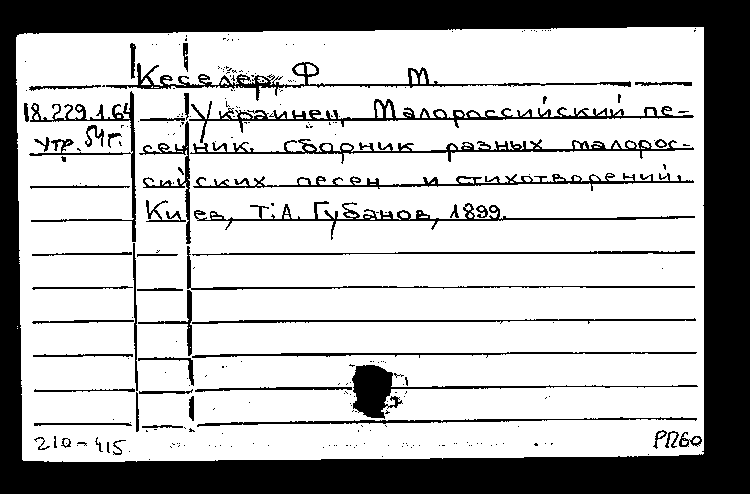 Кеселер, Ф. М.
18.229.1.64 Украинец, Малороссийский пе-
утр. 54г. сенник. Сборник разных малорос-
сийских песен и стихотворений.
Киев, Т.А. Губанов, 1899.
210-415 РП60